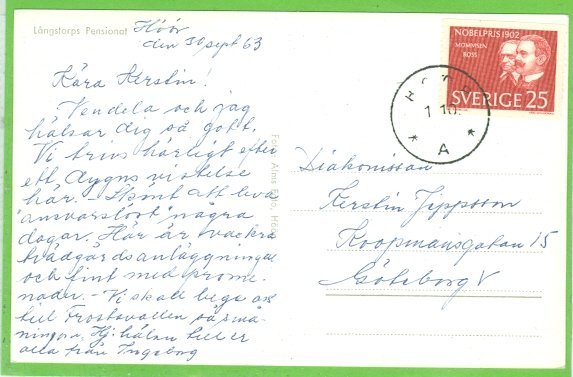 Långstorps Pensionat
Höör
den 30 sept 63
Kära Kerstin!
Vendela och jag
hälsar dig så gott.
Vi trivs härligt efter
ett dygns vistelse
här. - Skönt att leva
"ansvarslöst" några
dagar. Här är vackra
trädgårdsanläggningar
och fint med prome-
nader. - Vi skall bege oss
till Frostavallen så små-
ningom. Hj. hälsn till er
alla från Ingeborg
Foto, Höör
NOBELPRIS 1902
MOMMSEN
ROSS
SVERIGE 25
1 10.
A
Diakonissan
Kerstin Jeppsson
Koopmansgatan 15
Göteborg V